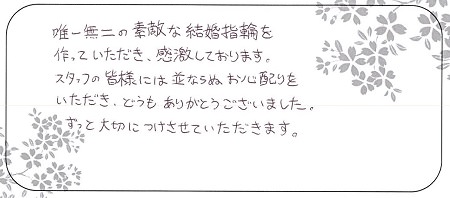 唯一無二の素敵な結婚指輪を
作っていただき、感激しております。
スタッフの皆様には並ならぬお心配りを
いただき、どうもありがとうございました。
ずっと大切につけさせていただきます。